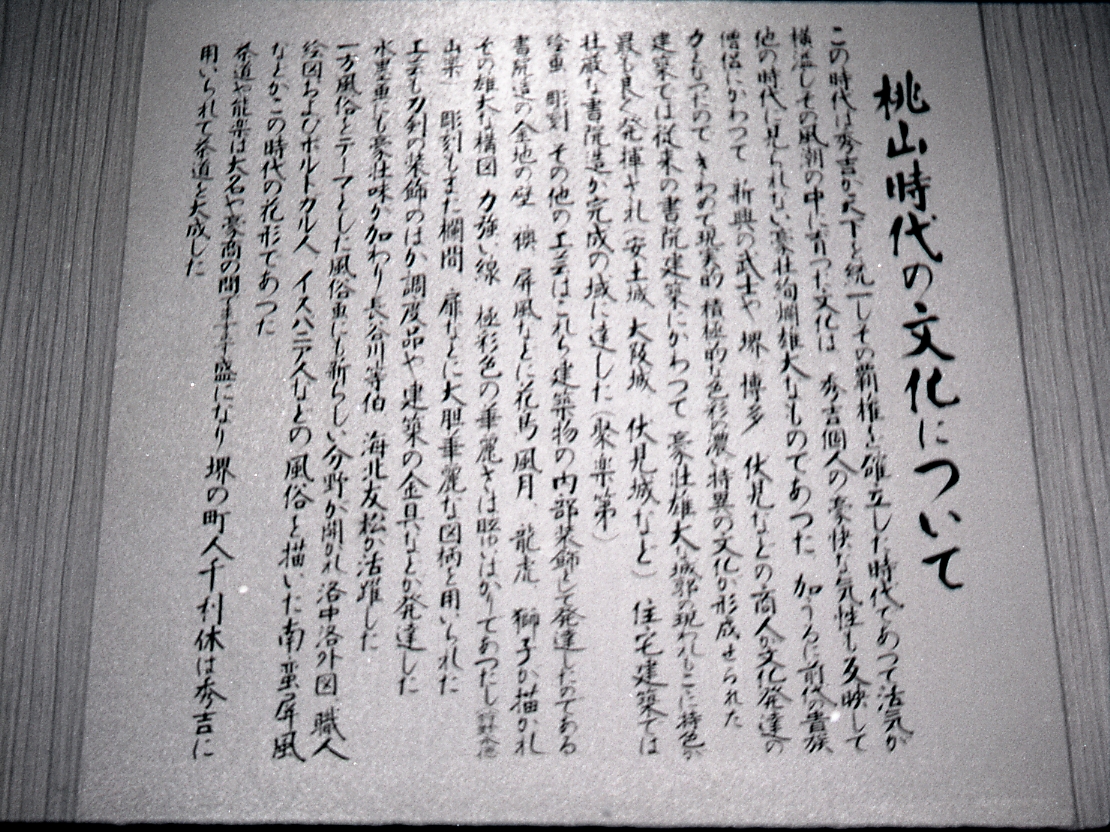 桃山時代の文化について
この時代は秀吉が天下を統一しその覇権を確立した時代であつて活気が
横溢しその風潮の中に育つた文化は 秀吉個人の豪快な気性も反映して
他の時代に見られない豪壮絢爛雄大なものであつた 加うるに前代の貴族
僧侶にかわつて 新興の武士や 堺 博多 伏見などの商人が文化発達の
力となつたので きわめて現実的 積極的な色彩の濃い特異の文化が形成せられた
建築では従来の書院建築にかわつて 豪壮雄大な城郭の現われもこに特色が
最も良く発揮され(安土城 大阪城 伏見城など) 住宅建築では
壮厳な書院造が完成の域に達した(聚楽第)
絵画 彫刻 その他の工芸はこれら建築物の内部装飾として発達したのである
書院造の金地の壁 襖 屏風などに花鳥 風月 龍虎 獅子が描かれ
その雄大な構図 力強い線 極彩色の華麗さは眩ゆいばかりであつた
山楽) 彫刻もまた欄間 扉などに大胆華麗な図柄を用いられた
工芸も刀剣の装飾のほか調度品や建築の金具などが発達した
水墨画にも豪壮味が加わり長谷川等伯 海北友松が活躍した
一方風俗をテーマとした風俗画にも新らしい分野が開かれ 洛中洛外図 職人
絵図およびポルトガル人 イスパニア人などの風俗を描いた南蛮屏風
などがこの時代の花形であつた
茶道や能楽は大名や豪商の間ますます盛になり 堺の町人千利休は秀吉に
用いられて茶道を大成した